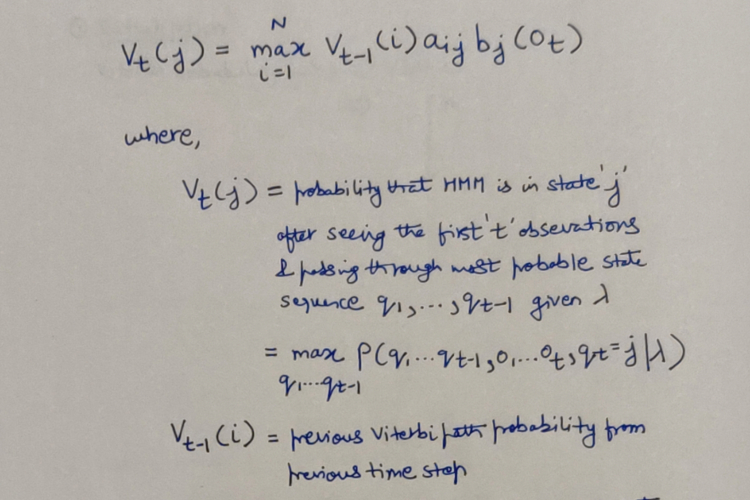 V_t(j) = max_{i=1}^{N} V_{t-1}(i) a_{ij} b_j(O_t)
where,
V_t(j) = probability that HMM is in state 'j'
after seeing the first 't' obsevations
& passing through most probable state
sequence q_1, ..., q_{t-1} given λ
= max_{q_1...q_{t-1}} P(q_1...q_{t-1}, o_1...o_t, q_t = j | λ)
V_{t-1}(i) = previous Viterbi path probability from
previous time step